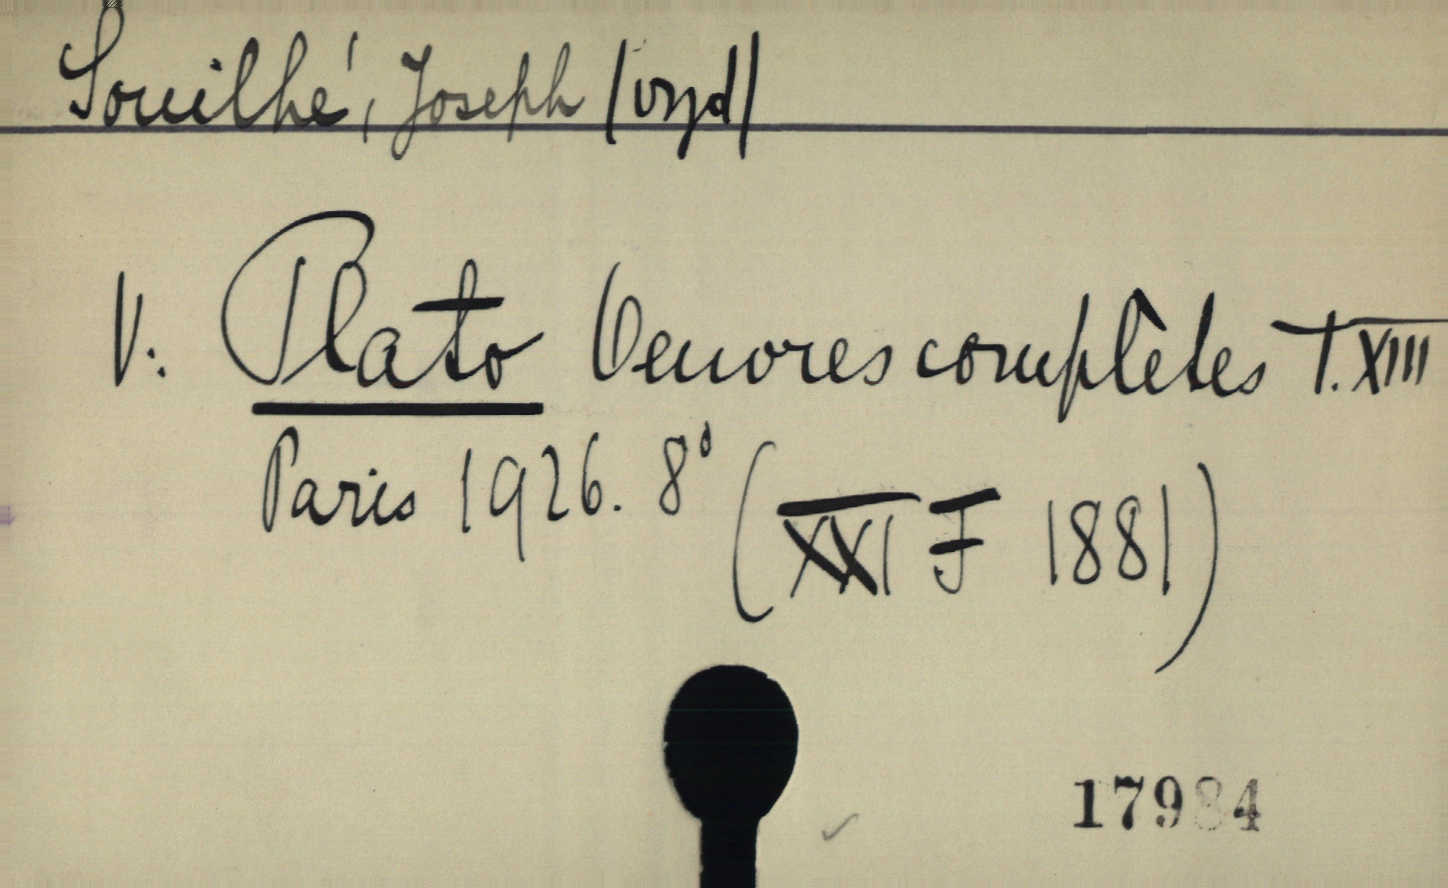 Souilhé, Joseph (vyd)
V. Plato Oeuvres complètes T. XIII
Paris 1926. 8° (XXI F 1881)
17984